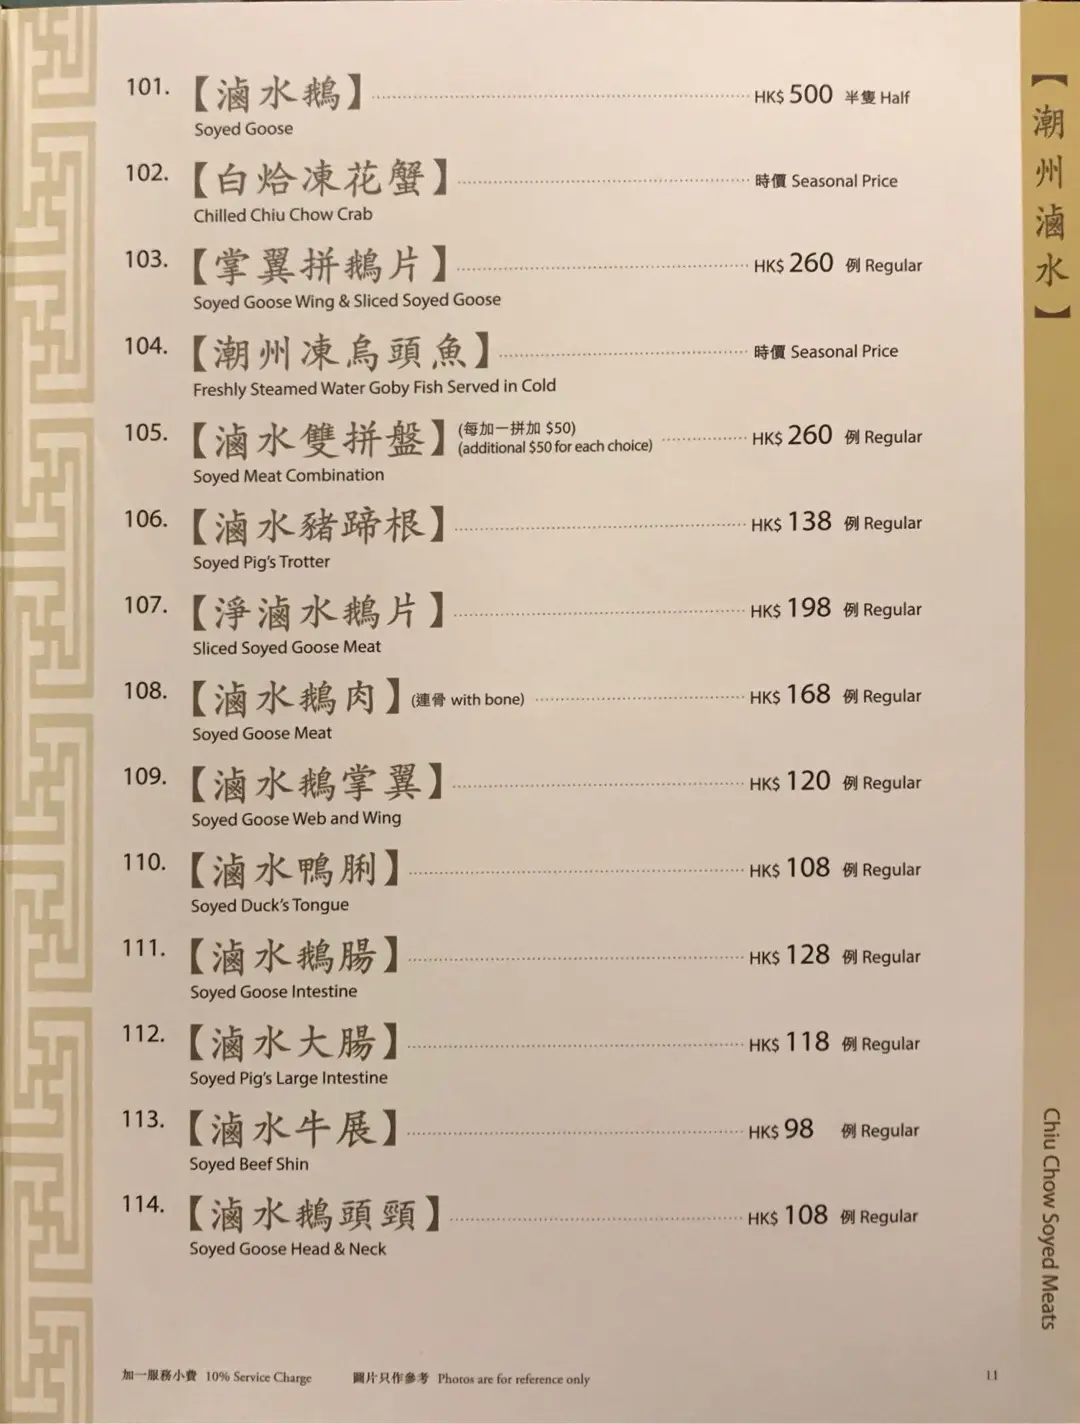 【潮州滷水】
101. 【滷水鵝】 HK$ 500 半隻 Half
Soyed Goose
102. 【白烚凍花蟹】 時價 Seasonal Price
Chilled Chiu Chow Crab
103. 【掌翼拼鵝片】 HK$ 260 例 Regular
Soyed Goose Wing & Sliced Soyed Goose
104. 【潮州凍烏頭魚】 時價 Seasonal Price
Freshly Steamed Water Goby Fish Served in Cold
105. 【滷水雙拼盤】 (每加一拼加 $50) HK$ 260 例 Regular
(additional $50 for each choice)
Soyed Meat Combination
106. 【滷水豬蹄根】 HK$ 138 例 Regular
Soyed Pig's Trotter
107. 【淨滷水鵝片】 HK$ 198 例 Regular
Sliced Soyed Goose Meat
108. 【滷水鵝肉】 (連骨 with bone) HK$ 168 例 Regular
Soyed Goose Meat
109. 【滷水鵝掌翼】 HK$ 120 例 Regular
Soyed Goose Web and Wing
110. 【滷水鴨脷】 HK$ 108 例 Regular
Soyed Duck's Tongue
111. 【滷水鵝腸】 HK$ 128 例 Regular
Soyed Goose Intestine
112. 【滷水大腸】 HK$ 118 例 Regular
Soyed Pig's Large Intestine
113. 【滷水牛展】 HK$ 98 例 Regular
Soyed Beef Shin
114. 【滷水鵝頭頸】 HK$ 108 例 Regular
Soyed Goose Head & Neck
Chiu Chow Soyed Meats
加一服務小費 10% Service Charge 圖片只作參考 Photos are for reference only 11